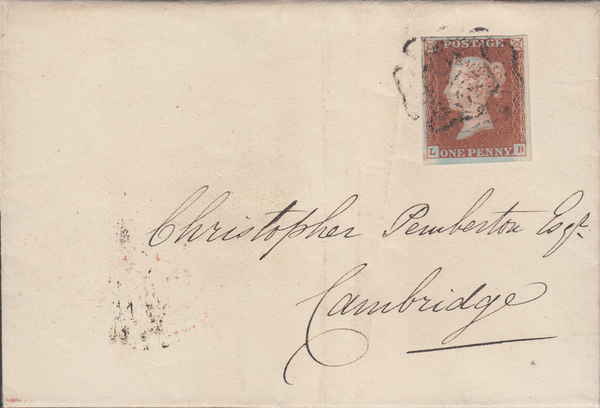 POSTAGE
L ONE PENNY. B
Christopher Pemberton Esqr.
Cambridge